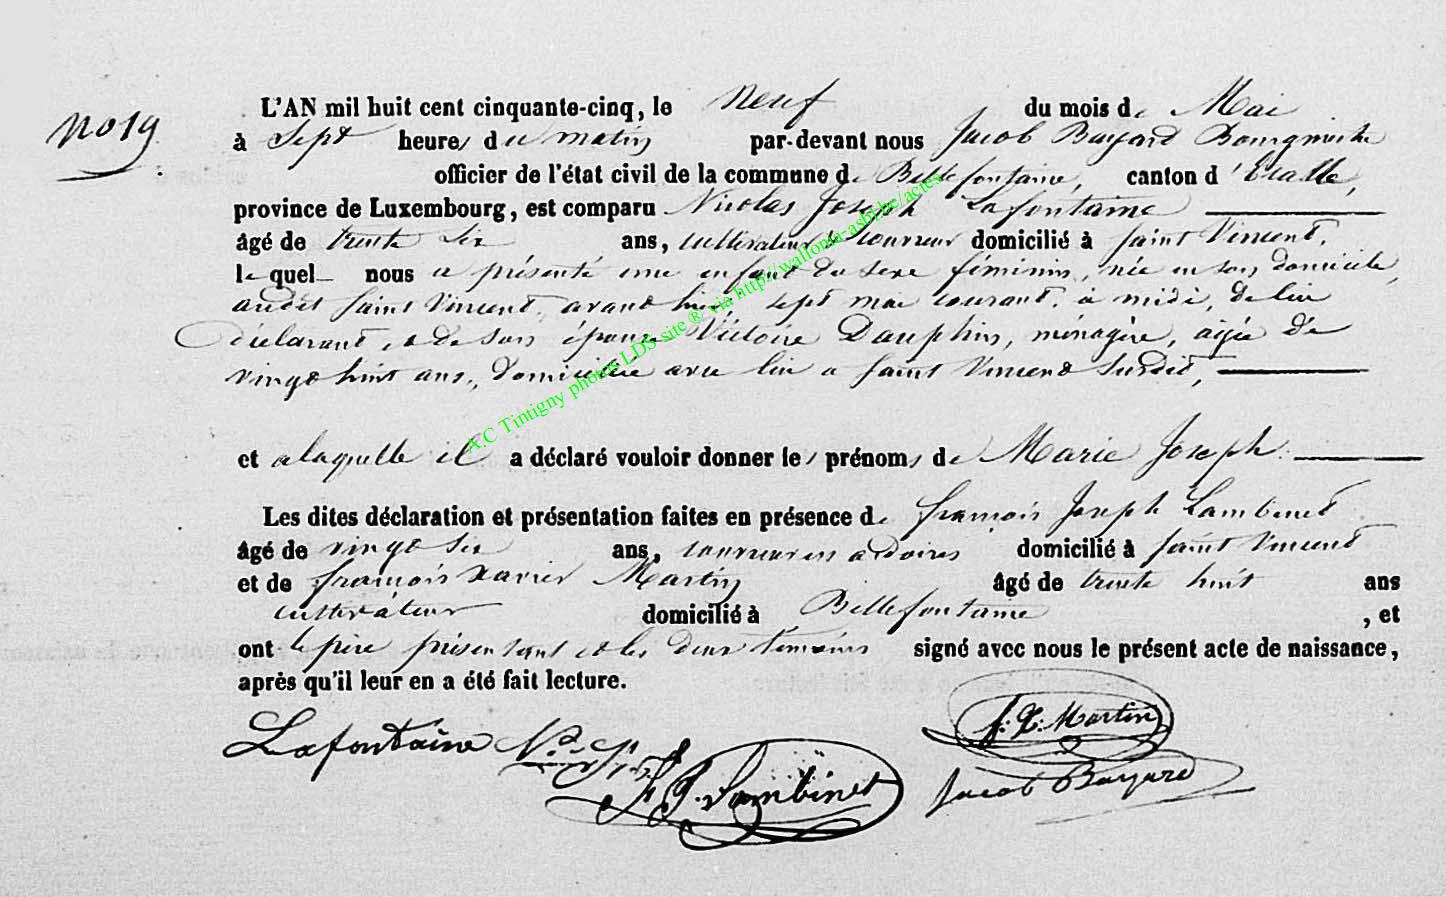 No 19
L'AN mil huit cent cinquante-cinq, le neuf du mois de Mai
à Sept heures du matin par-devant nous Jacob Bayard Bourgmestre
officier de l'état civil de la commune de Bellefontaine, canton d'Etalle,
province de Luxembourg, est comparu Nicolas Joseph Lafontaine
âgé de trente six ans, cultivateur & couvreur domicilié à Saint Vincent,
lequel nous a présenté une enfant du sexe féminin, née en son domicile,
audit Saint Vincent, avant hier, sept mai courant, à midi, de lui
déclarant, et de son épouse Victoire Dauphin, ménagère, agée de
vingt huit ans, domiciliée avec lui a Saint Vincent susdit,
et a laquelle il a déclaré vouloir donner les prénoms de Marie Joseph.
Les dites déclaration et présentation faites en présence de françois Joseph Lambinet
âgé de vingt six ans, couvreur en ardoises domicilié à Saint Vincent
et de françois Xavier Martin âgé de trente huit ans
cultivateur domicilié à Bellefontaine, et
ont le père présentant et les deux témoins signé avec nous le présent acte de naissance,
après qu'il leur en a été fait lecture.
Lafontaine
F. X. Martin
F J. Lambinet
Jacob Bayard
A.C Tintigny photos LDS site ® via http://wallonia-asbl.be/actes